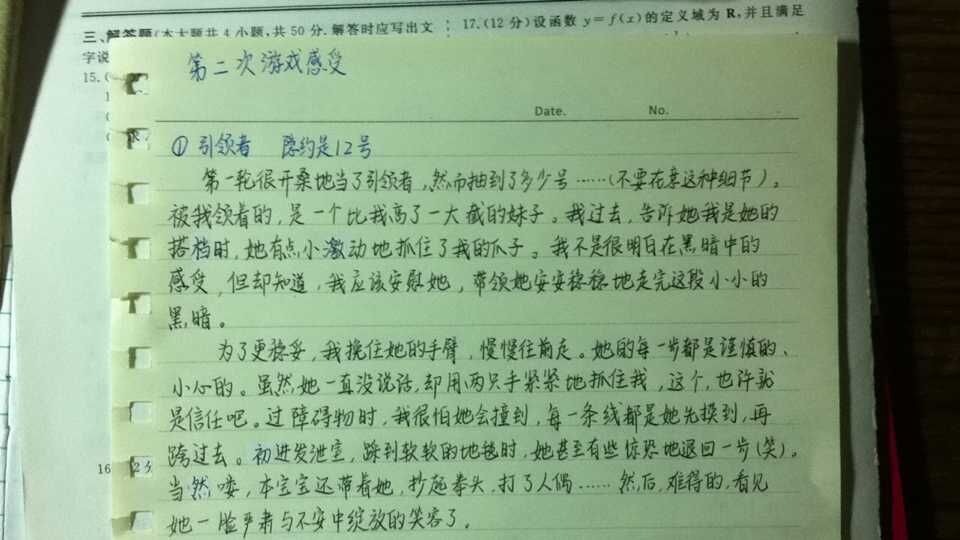 三、解答题(本大题共4小题,共50分.解答时应写出文
字说
15.(
17.(12分)设函数 y=f(x)的定义域为 R,并且满足
第二次游戏感受
Date. No.
①引领者 隐约是12号
第一轮很开桑地当了引领者,然而抽到了多少号……(不要在意这种细节)。
被我领着的,是一个比我高了一大截的妹子。我过去,告诉她我是她的
搭档时,她有点小激动地抓住了我的爪子。我不是很明白在黑暗中的
感受,但却知道,我应该安慰她,带领她安安稳稳地走完这段小小的
黑暗。
为了更稳妥,我挽住她的手臂,慢慢往前走。她的每一步都是谨慎的、
小心的。虽然她一直没说话,却用两只手紧紧地抓住我,这个,也许就
是信任吧。过障碍物时,我很怕她会撞到,每一条线都是她先摸到,再
跨过去。初进发泄室,踩到软软的地毯时,她甚至有些惊恐地退回一步(笑)。
当然喽,本宝宝还带着她,抄起拳头,打了人偶……然后,难得的,看见
她一脸严肃与不安中绽放的笑容了。
16